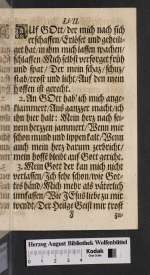 LVII.
AUf GOtt/ der mich nach sich
erschaffen/ Erlöset und gebeili-
get hat/ in ihm mich lassen wachen/
schlaffen/ Mich selbst versorget früh
und spat/ Der mein schatz/ schutz/
stab/ trost und licht/ Auf den mein
hoffen ist gericht.
2. An GOtt hab' ich mich ange-
klammert/ Aus gantzer macht/ ich
ihn hier halt: Mein hertz nach sei-
nem hertzen jammert/ Wenn mir
schon mund und lippen kalt/ Wenn
auch mein hertz darum zerbricht/
mein hoffe bleibt auf Gott gericht.
3. Mein Gott der kan mich nicht
verlassen/ Ich sehe schon/ wie Got-
tes händ/ Mich mehr als väterlich
umfassen/ Wie JEsus liebe zu mir
wend/ Der Heilge Geist mir trost
Herzog August Bibliothek Wolfenbüttel
Kodak